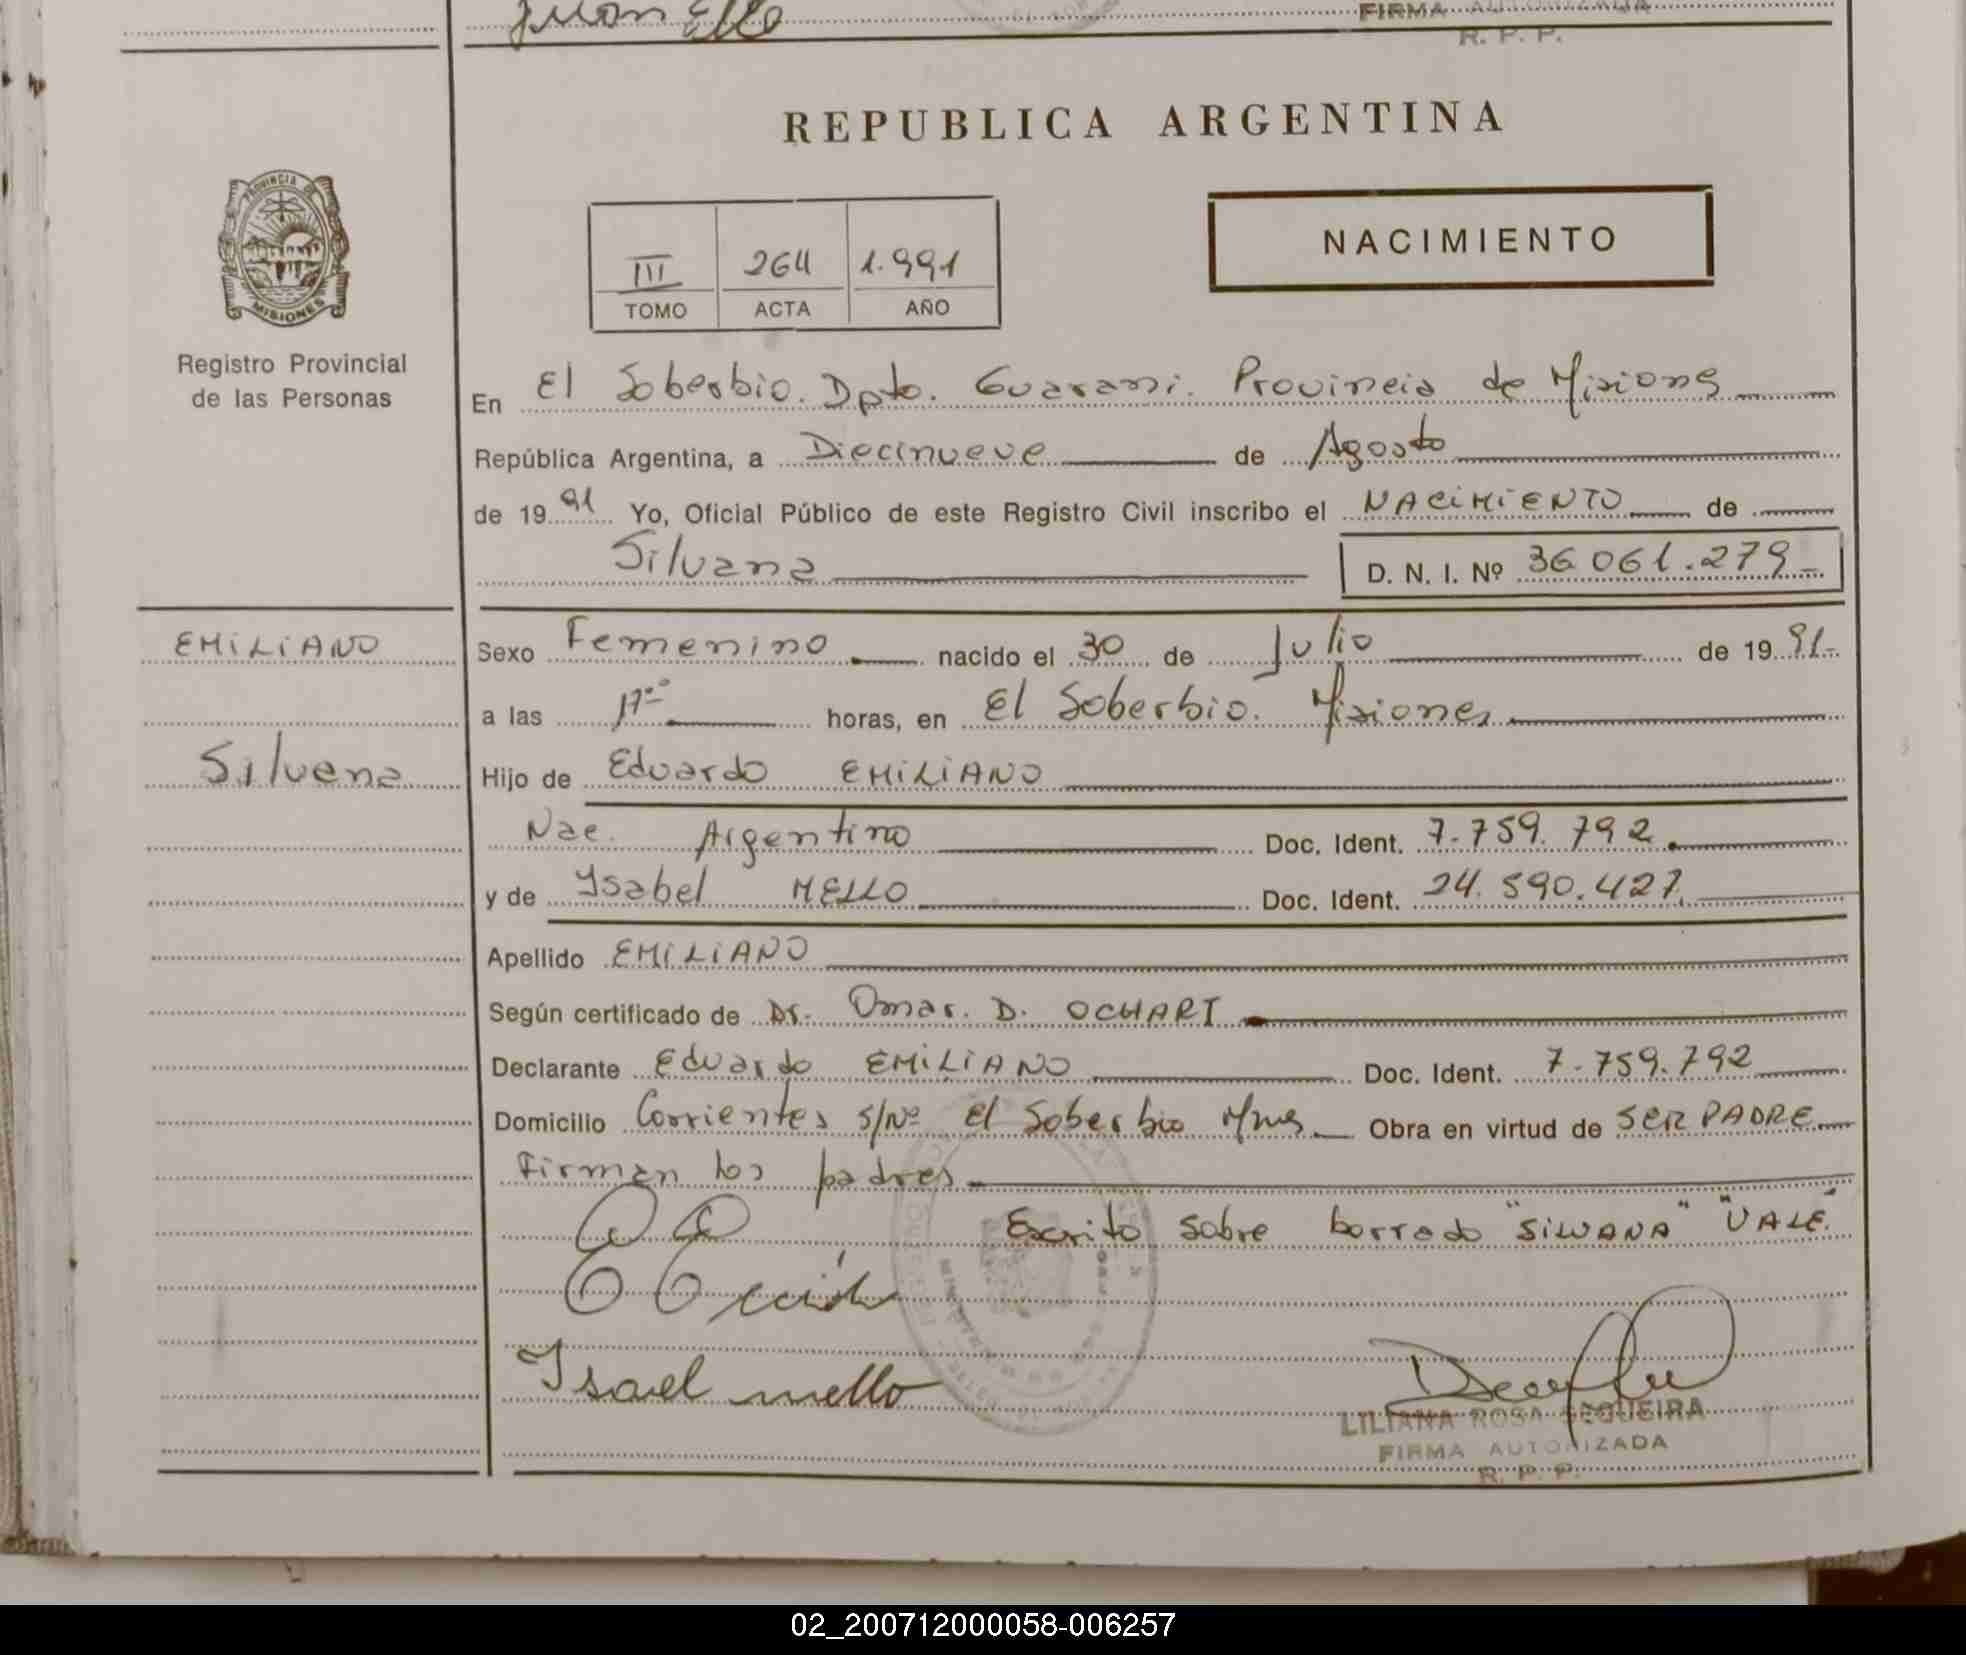 FIRMA AUTORIZADA
R. P. P.
REPUBLICA ARGENTINA
PROVINCIA DE
MISIONES
Registro Provincial
de las Personas
III 264 1.991
TOMO ACTA AÑO
NACIMIENTO
En El Soberbio. Dpto. Guarani. Provincia de Misiones
República Argentina, a Diecinueve de Agosto
de 1991 Yo, Oficial Público de este Registro Civil inscribo el NACIMIENTO de
Silvana D. N. I. Nº 36.061.279
EMILIANO
Silvana
Sexo Femenino nacido el 30 de Julio de 1991
a las 17 horas, en El Soberbio. Misiones
Hijo de Eduardo EMILIANO
Nac. Argentino Doc. Ident. 7.759.792
y de Ysabel MELLO Doc. Ident. 24.590.427
Apellido EMILIANO
Según certificado de Dr. Omar. D. OCHART
Declarante Eduardo EMILIANO Doc. Ident. 7.759.792
Domicilio Corrientes S/Nº El Soberbio Mnes Obra en virtud de SER PADRE
Firman los padres
Escrito sobre borrado "SILVANA" "VALE.
Isael mello
LILIANA ROSA SEQUEIRA
FIRMA AUTORIZADA
R. P. P.
02_200712000058-006257